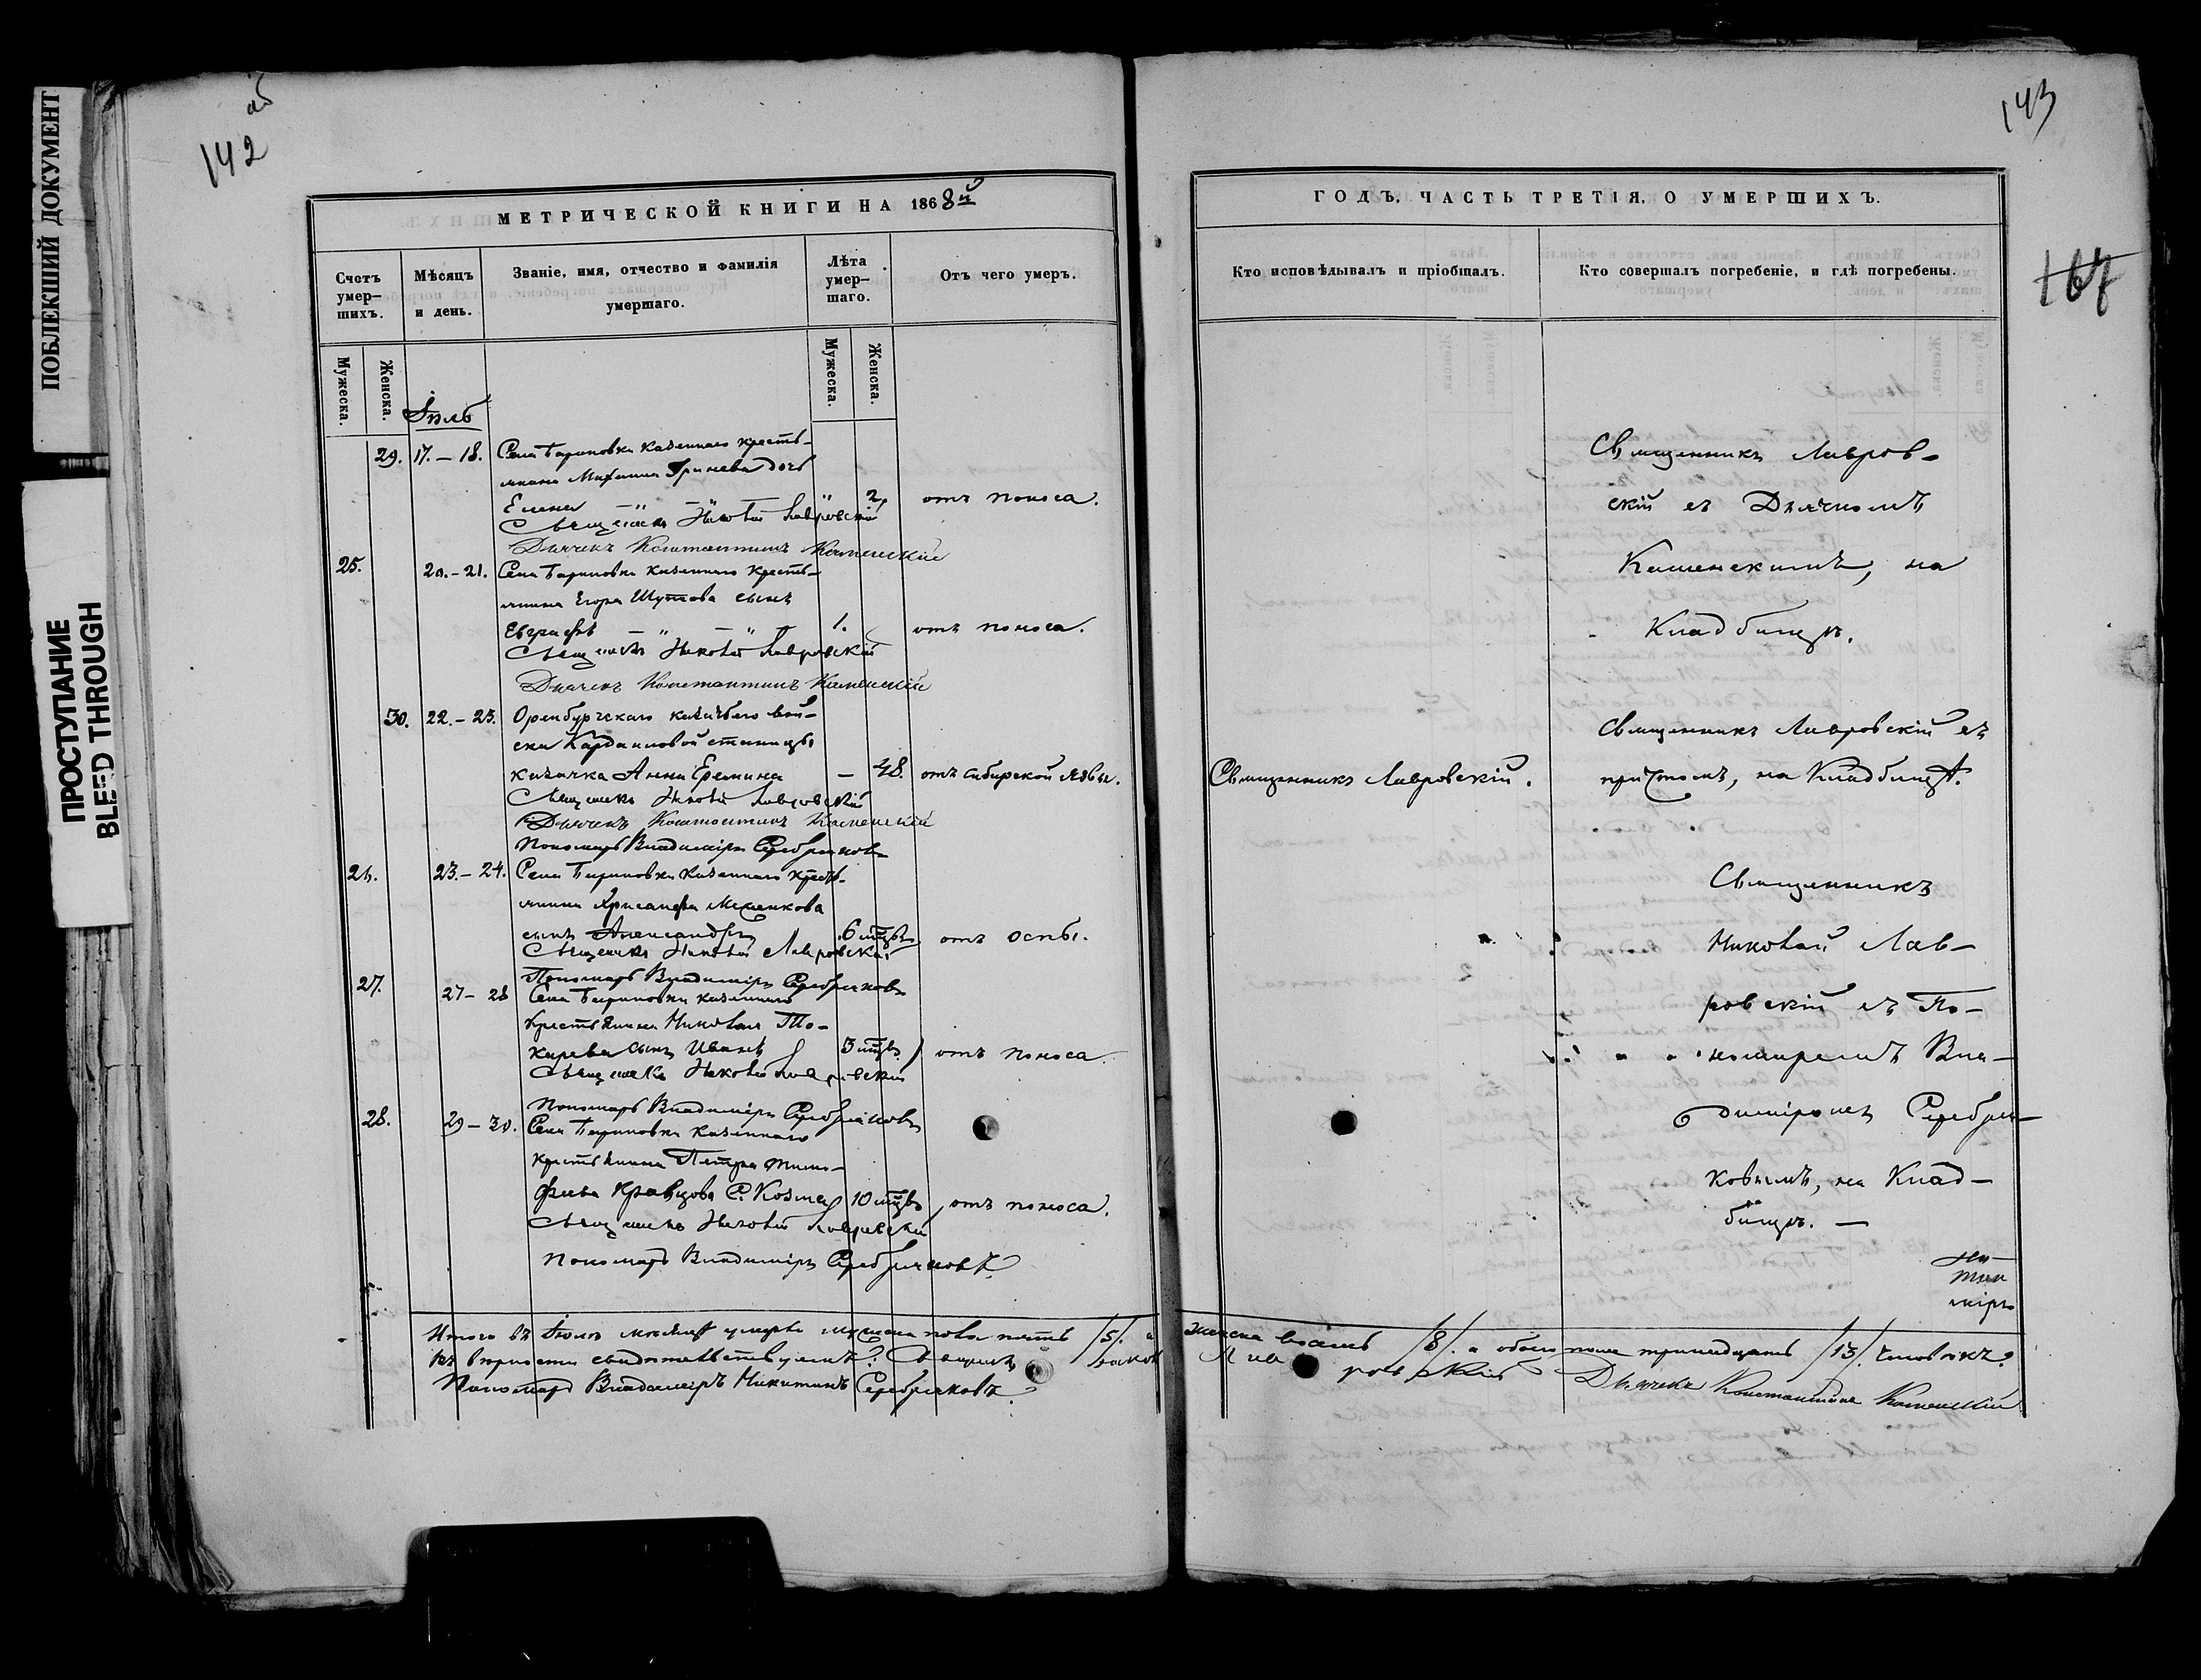 ПОБЛЕКШИЙ ДОКУМЕНТ
ПРОСТУПАНИЕ
BLEED THROUGH
об
142
МЕТРИЧЕСКОЙ КНИГИ НА 1868й
Счетъ умер-шихъ.
Мѣсяцъ и день.
Званіе, имя, отчество и фамилія умершаго.
Лѣта умер-шаго.
Отъ чего умеръ.
Мужеска.
Женска.
Мужеска.
Женска.
Іюль
29. 17.–18. Села Бариновки казеннаго кресть-
янина Михаила Гринева дочь
Елена – " – " – " 2. отъ поноса.
Священникъ Николай Лавровскій
Дьячекъ Константинъ Каменскій
25. 20.–21. Села Бариновки казеннаго кресть-
янина Егора Шутова сынъ
Евграфъ – " – " – 1. отъ поноса.
Священникъ Николай Лавровскій
Дьячекъ Константинъ Каменскій
30. 22.–23. Оренбургскаго казачьяго вой-
ска Кардаиловой станицы
казачка Анна Еремина – 48. отъ сибирской язвы.
Священникъ Николай Лавровскій
Дьячекъ Константинъ Каменскій
Пономарь Владиміръ Серебряковъ
26. 23.–24. Села Бариновки казеннаго кресть-
янина Хрисанфа
сынъ Александръ 6 мцвъ отъ оспы.
Священникъ Николай Лавровскій
Пономарь Владиміръ Серебряковъ
27. 27–28 Села Бариновки казеннаго
крестьянина Николая То-
карева сынъ Иванъ 3 мцвъ отъ поноса.
Священникъ Николай Лавровскій
Пономарь Владиміръ Серебряковъ
28. 29–30. Села Бариновки казеннаго
крестьянина Петра Тимо-
феева Кравцова с. Козма 10 мцвъ отъ поноса.
Священникъ Николай Лавровскій
Пономарь Владиміръ Серебряковъ
Итого въ Іюлѣ мѣсяцѣ умерло мужеска пола пять /5/. а
въ вѣрности свидѣтельствуемъ: Священникъ Николай
Пономарь Владиміръ Никитинъ Серебряковъ
143
167
ГОДЪ, ЧАСТЬ ТРЕТІЯ, О УМЕРШИХЪ.
Кто исповѣдывалъ и пріобщалъ.
Кто совершалъ погребеніе, и гдѣ погребены.
Священникъ Лавров-
скій съ Дьячкомъ
Каменскимъ, на
Кладбищѣ.
Священникъ Лавровскій.
Священникъ Лавровскій съ
причтомъ, на Кладбищѣ.
Священникъ
Николай Лав-
ровскій съ По-
номаремъ Вла-
диміромъ Серебря-
ковымъ, на Клад-
бищѣ. –
женска восемь /8/. а обоего пола тринадцать /13/. человѣкъ.
Лавровскій Дьячекъ Константинъ Каменскій